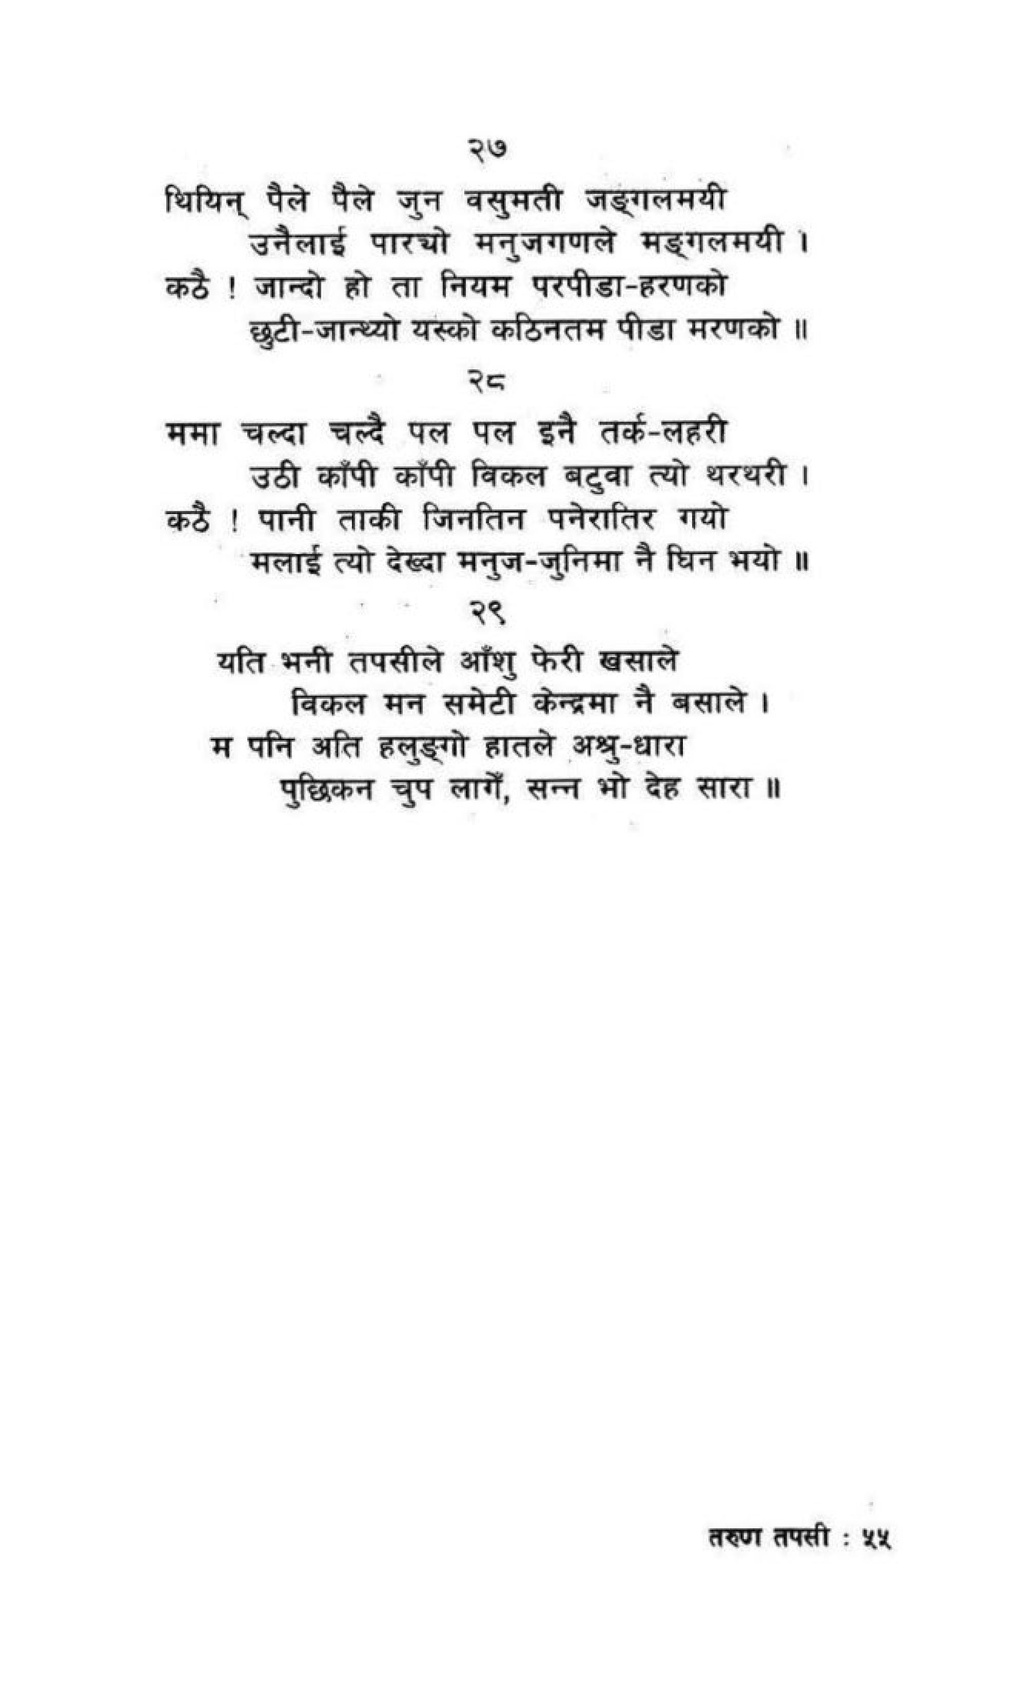 २७
थियिन् पैले पैले जुन वसुमती जङ्गलमयी
उनैलाई पारयो मनुजगणले मङ्गलमयी ।
कठै ! जान्दो हो ता नियम परपीडा-हरणको
छुटी-जान्थ्यो यस्को कठिनतम पीडा मरणको ॥
२८
ममा चल्दा चल्दै पल पल इनै तर्क-लहरी
उठी काँपी काँपी विकल बटुवा त्यो थरथरी ।
कठै ! पानी ताकी जिनतिन पनेरातिर गयो
मलाई त्यो देख्दा मनुज-जुनिमा नै घिन भयो ॥
२९
यति भनी तपसीले आँशु फेरी खसाले
विकल मन समेटी केन्द्रमा नै बसाले ।
म पनि अति हलुङ्गो हातले अश्रु-धारा
पुछिकन चुप लागेँ, सन्न भो देह सारा ॥
तरुण तपसी : ५५